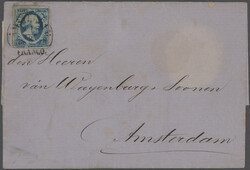 FRANCO.
den Heeren
van Wagenburg & Soonen
Amsterdam